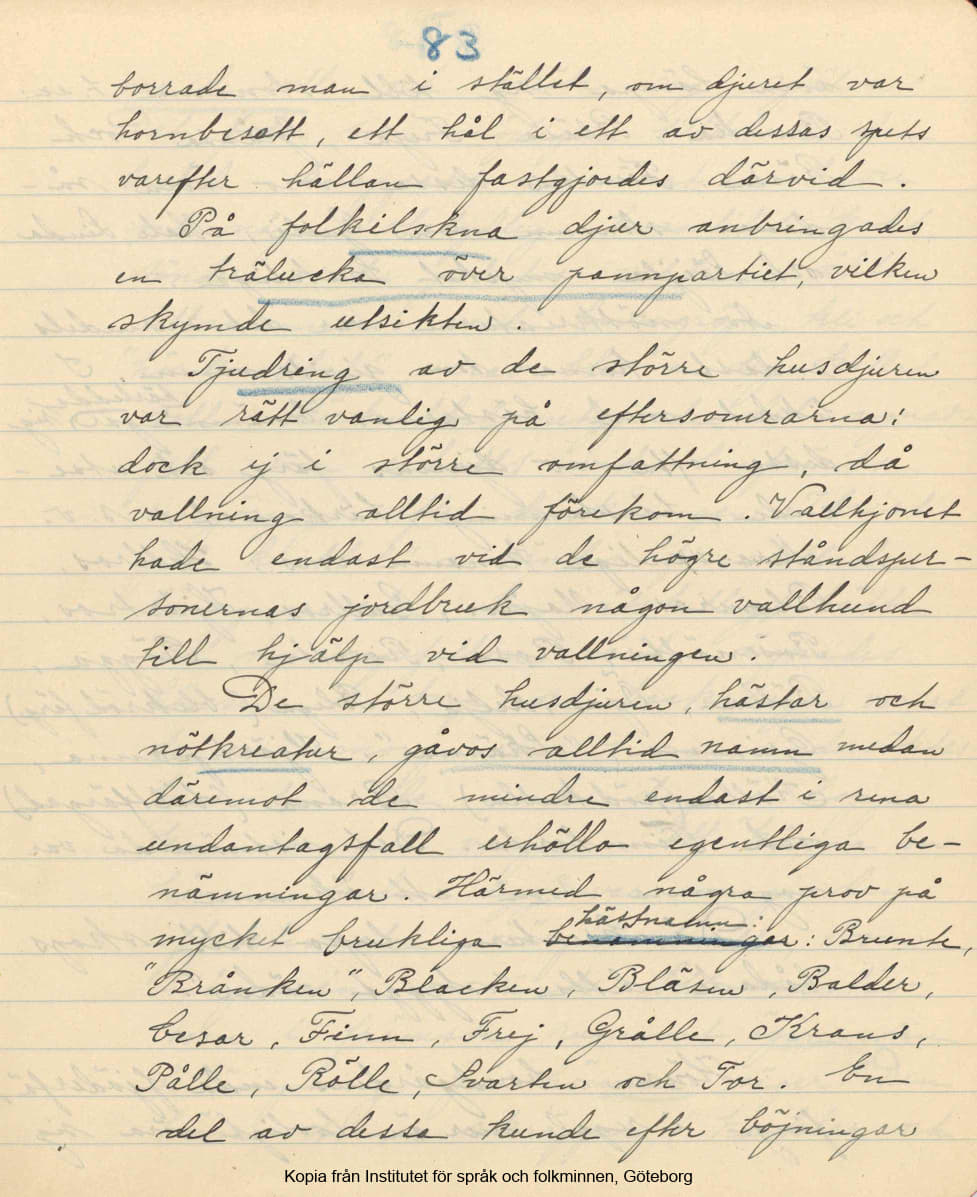 83
borrade man i stället, om djuret var
hornbesatt, ett hål i ett av dessas spets
varefter hällan fastgjordes därvid.
På folkilskna djur anbringades
en trälucka över pannpartiet, vilken
skymde utsikten.
Tjudring av de större husdjuren
var rätt vanlig på eftersomrarna;
dock ej i större omfattning, då
vallning alltid förekom. Vallhjonet
hade endast vid de högre ståndsper-
sonernas jordbruk någon vallhund
till hjälp vid vallningen.
De större husdjuren, hästar och
nötkreatur, gåvos alltid namn medan
däremot de mindre endast i rena
undantagsfall erhöllo egentliga be-
nämningar. Härmed några prov på
hästnamn:
mycket brukliga benämningar: Brunte,
"Brånken", Blacken, Bläsen, Balder,
Cesar, Finn, Frej, Grålle, Kraus,
Pålle, Rölle, Svarten och Tor. En
del av dessa kunde efter böjningar
Kopia från Institutet för språk och folkminnen, Göteborg